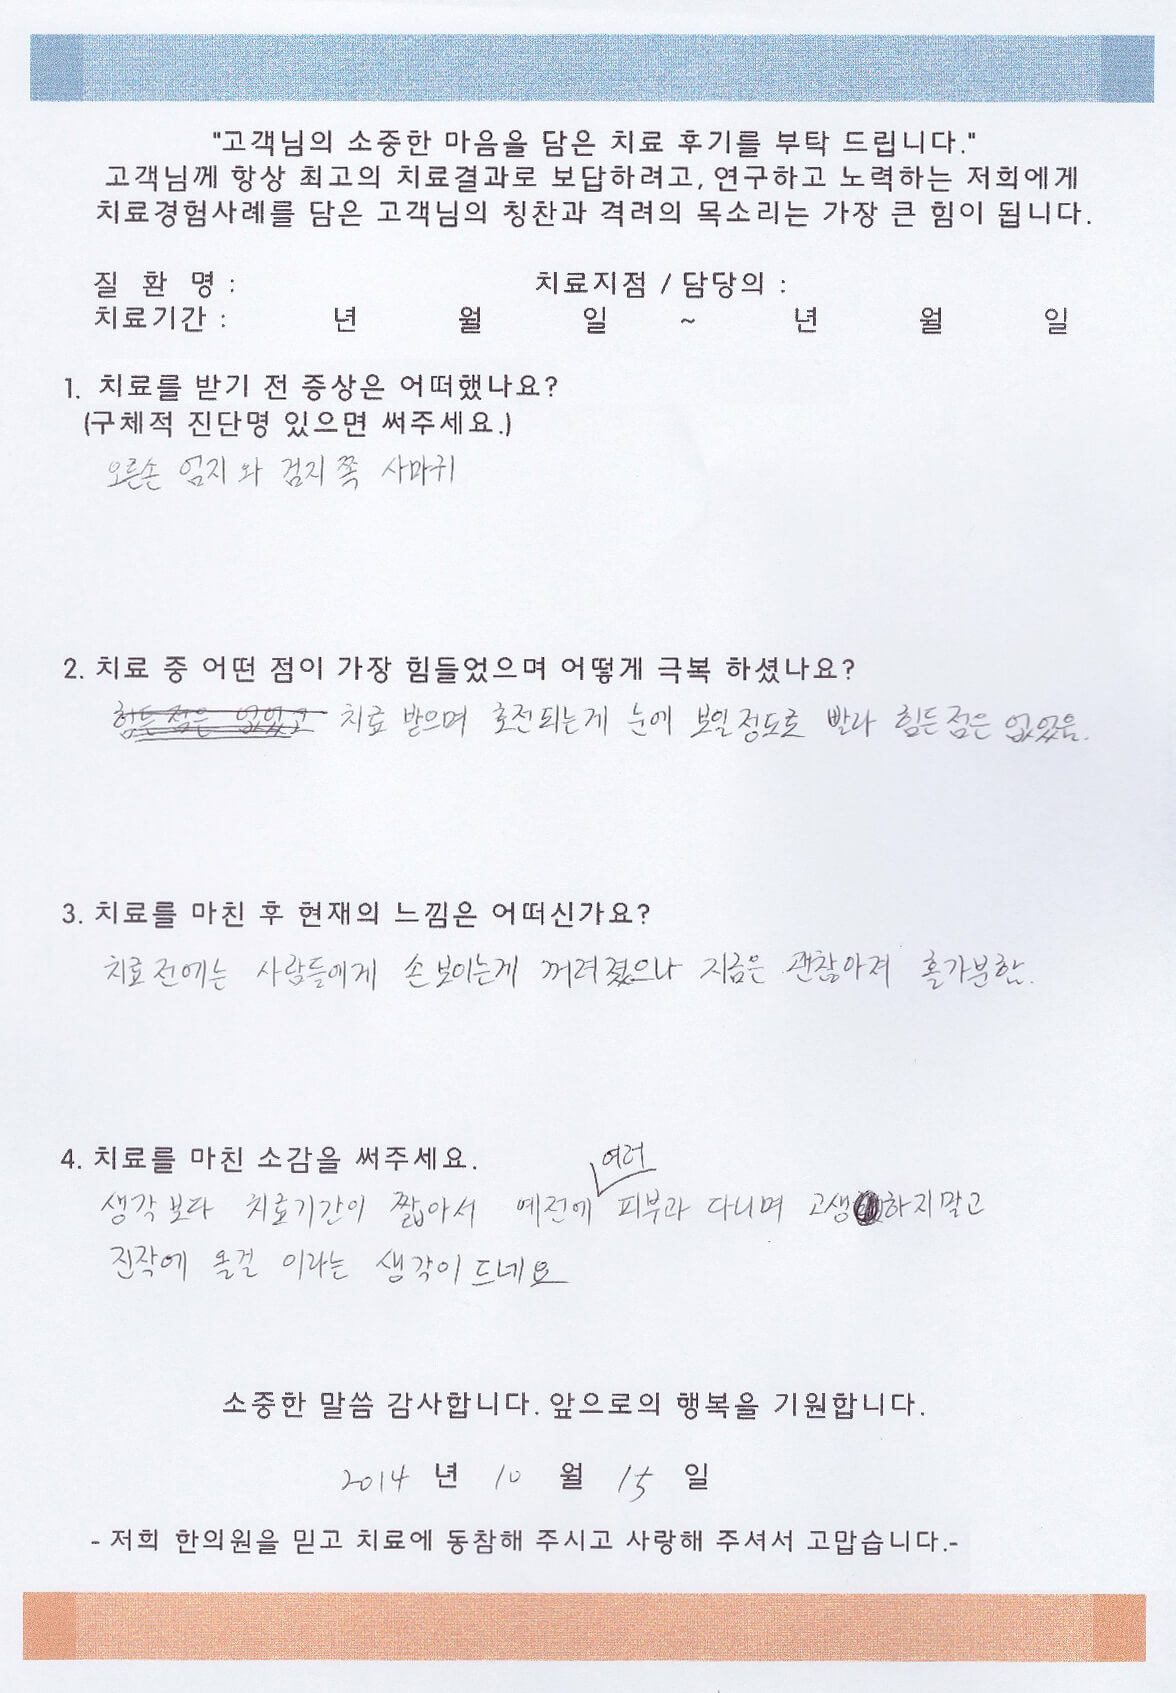 "고객님의 소중한 마음을 담은 치료 후기를 부탁 드립니다."
고객님께 항상 최고의 치료결과로 보답하려고, 연구하고 노력하는 저희에게
치료경험사례를 담은 고객님의 칭찬과 격려의 목소리는 가장 큰 힘이 됩니다.
질 환 명 : 치료지점 / 담당의 :
치료기간 : 년 월 일 ~ 년 월 일
1. 치료를 받기 전 증상은 어떠했나요?
(구체적 진단명 있으면 써주세요.)
오른손 엄지와 검지 쪽 사마귀
2. 치료 중 어떤 점이 가장 힘들었으며 어떻게 극복 하셨나요?
힘든점은 없었고 치료 받으며 호전되는게 눈에 보일정도로 빨라 힘든점은 없었음.
3. 치료를 마친 후 현재의 느낌은 어떠신가요?
치료전에는 사람들에게 손 보이는게 꺼려졌으나 지금은 괜찮아져 홀가분함.
4. 치료를 마친 소감을 써주세요.
생각보다 치료기간이 짧아서 예전에 여러 피부과 다니며 고생하지말고
진작에 올걸 이라는 생각이 드네요
소중한 말씀 감사합니다. 앞으로의 행복을 기원합니다.
2014 년 10 월 15 일
- 저희 한의원을 믿고 치료에 동참해 주시고 사랑해 주셔서 고맙습니다.-